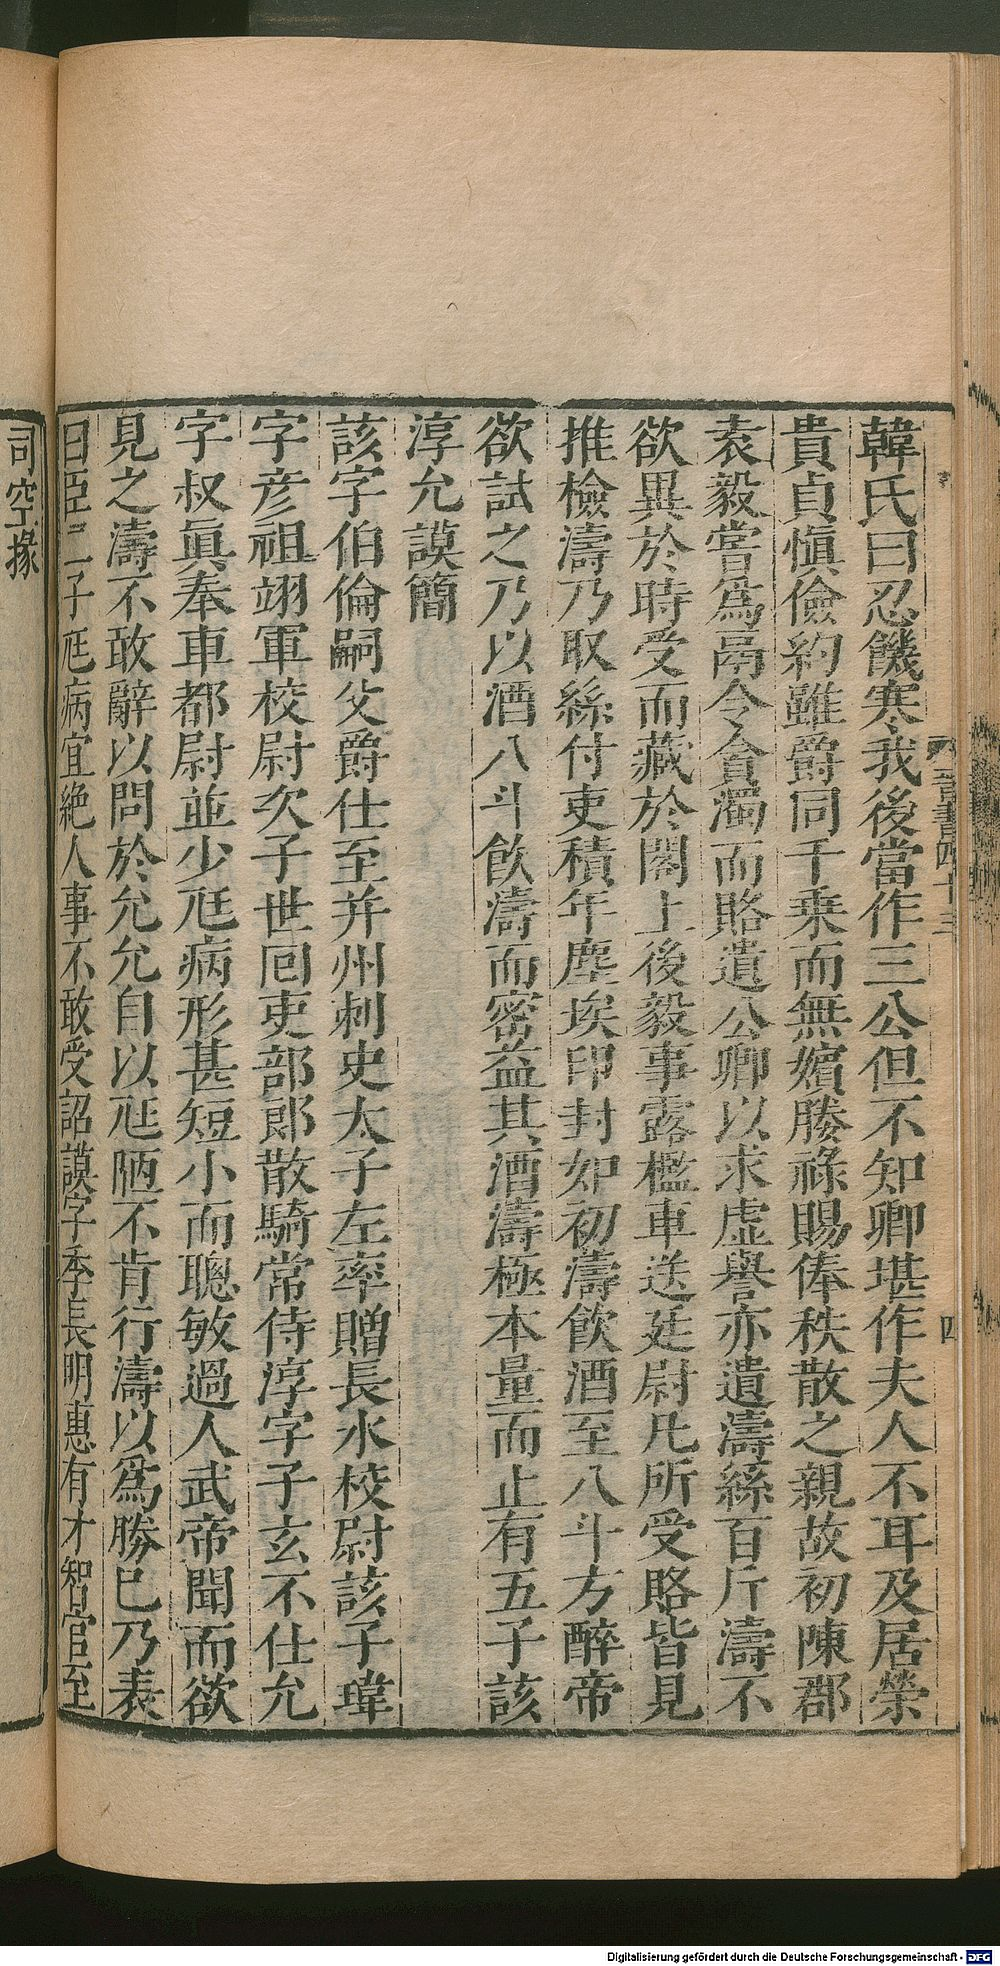 晉書四十三
四
韓氏曰忍饑寒我後當作三公但不知卿堪作夫人不耳及居榮
貴貞愼儉約雖爵同千乗而無嬪媵祿賜俸秩散之親故初陳郡
袁毅嘗爲鬲令貪濁而賂遺公卿以求虛譽亦遺濤絲百斤濤不
欲異於時受而藏於閣上後毅事露檻車送廷尉凡所受賂皆見
推檢濤乃取絲付吏積年塵埃印封如初濤飲酒至八斗方醉帝
欲試之乃以酒八斗飮濤而密益其酒濤極本量而止有五子該
淳允謨簡
該字伯倫嗣父爵仕至并州刺史太子左率贈長水校尉該子瑋
字彦祖翊軍校尉次子世回吏部郎散騎常侍淳字子玄不仕允
字叔眞奉車都尉並少尫病形甚短小而聰敏過人武帝聞而欲
見之濤不敢辭以問於允允自以尫陋不肯行濤以爲勝巳乃表
曰臣二子尫病宜絶人事不敢受詔謨字季長明惠有才智官至
司空掾
Digitalisierung gefördert durch die Deutsche Forschungsgemeinschaft - DFG